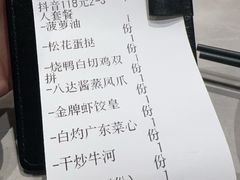 抖音118元2-3
人套餐
-菠萝油
1份
-松花蛋挞
1份
-烧鸭白切鸡双
拼
1份
-八达酱蒸凤爪
1份
-金牌虾饺皇
1份
-白灼广东菜心
1份
-干炒牛河
1份